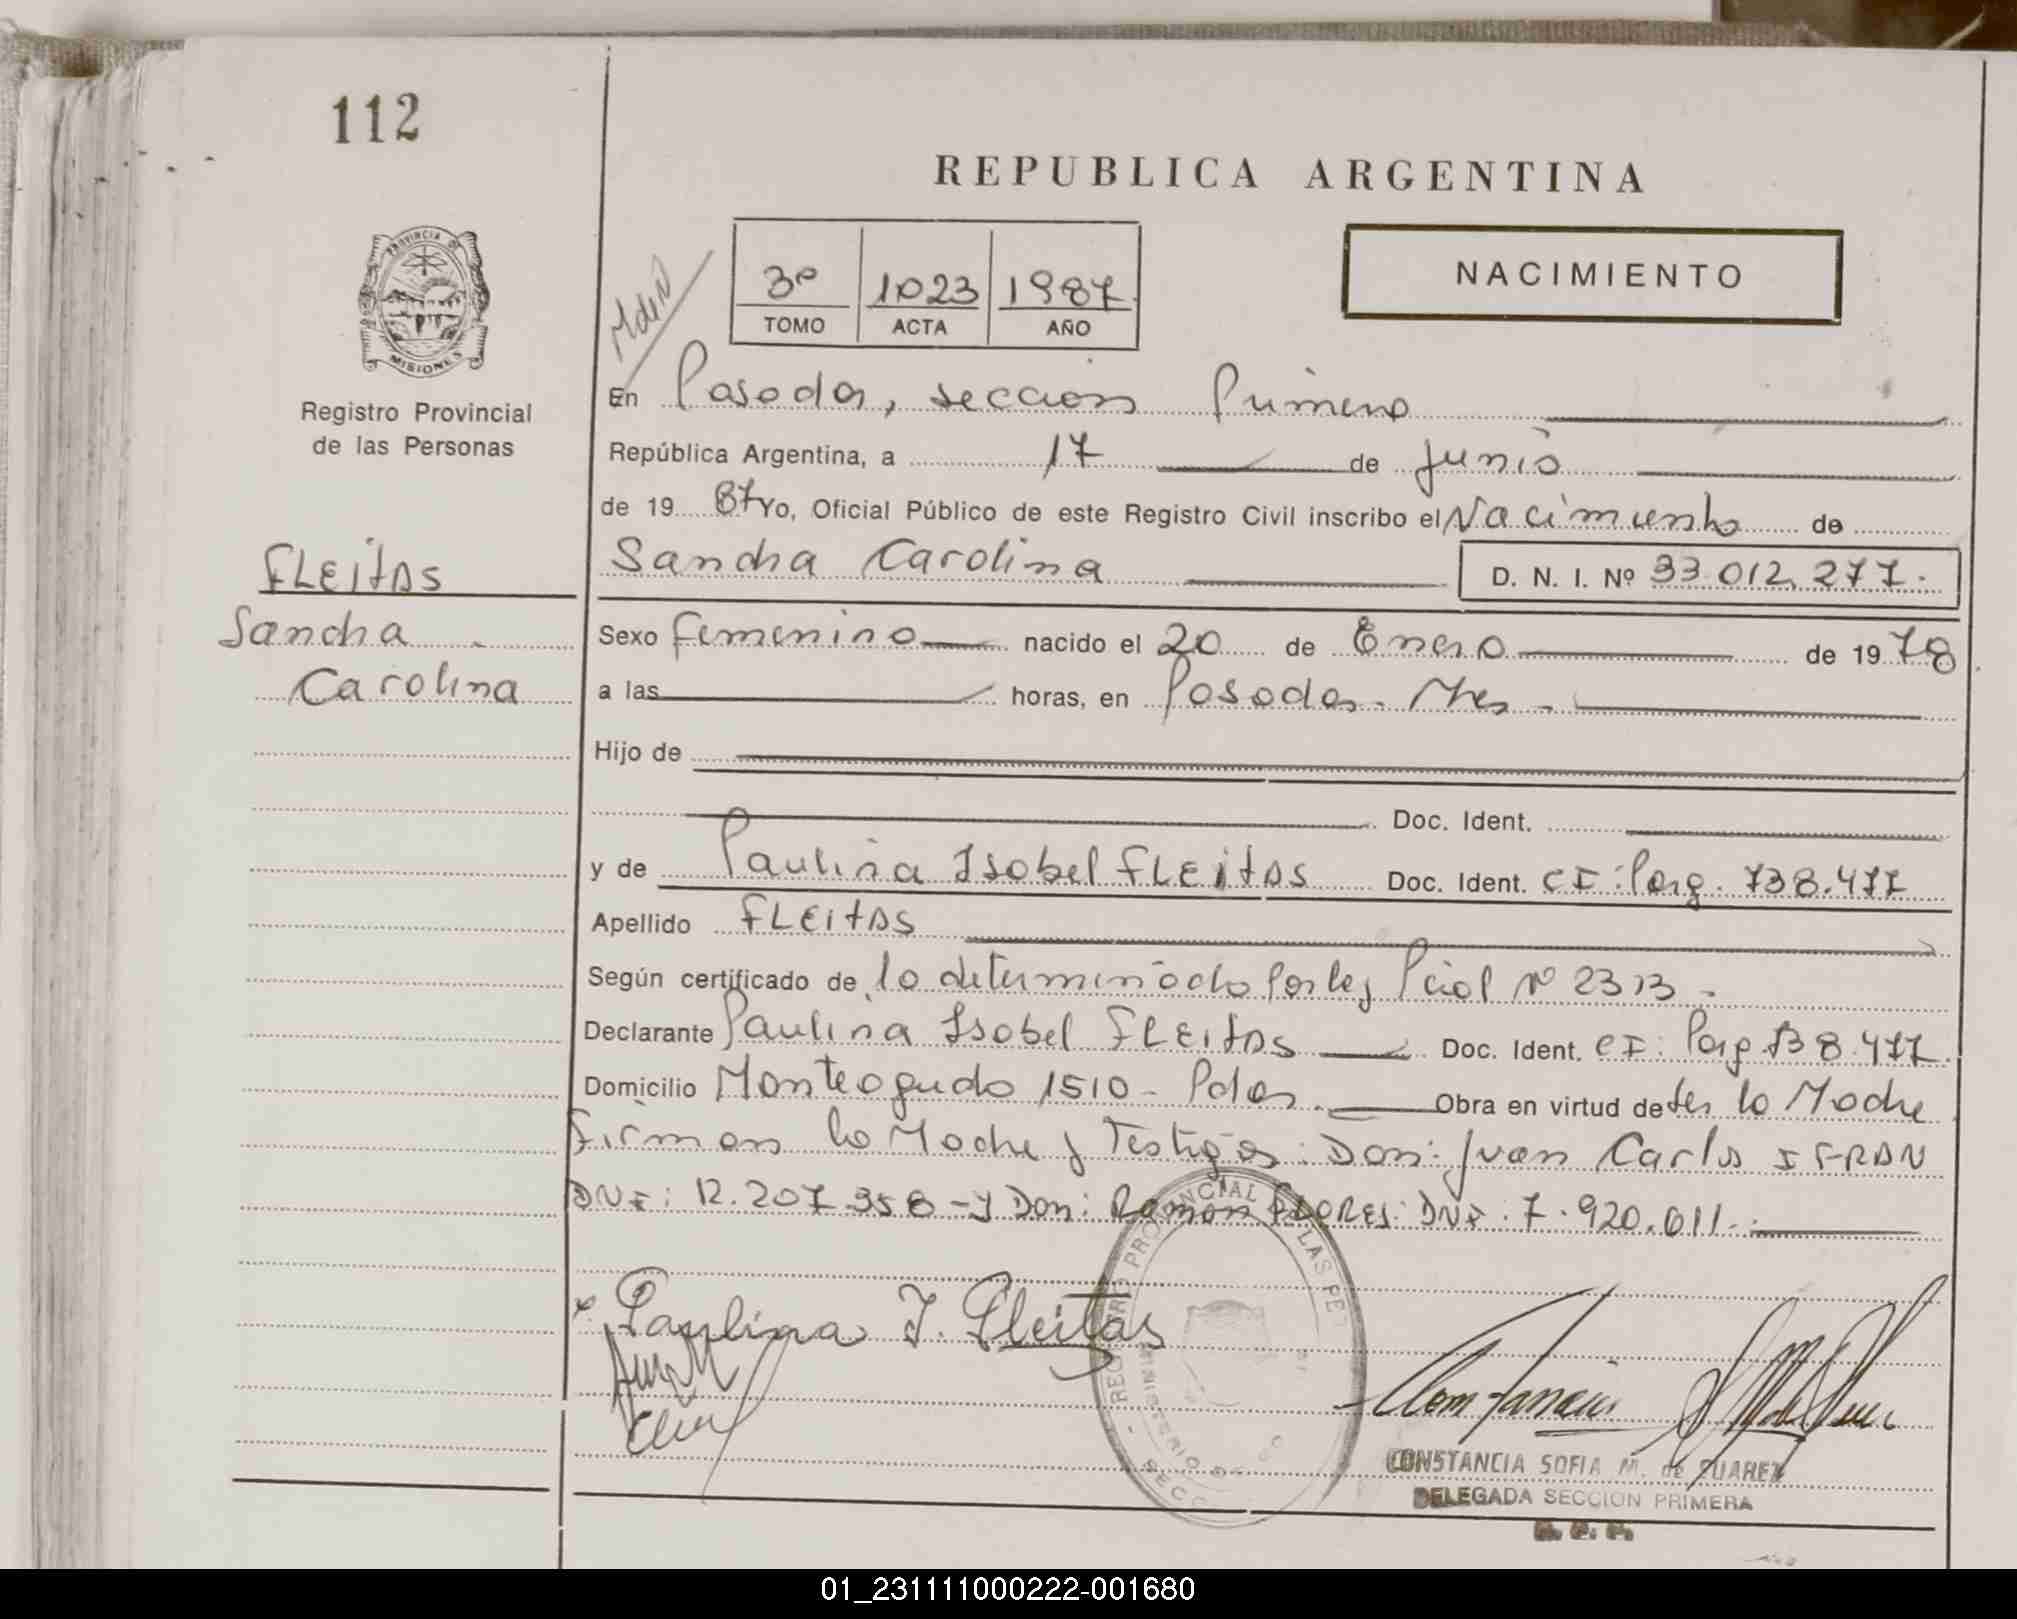 112
REPUBLICA ARGENTINA
PROVINCIA DE
MISIONES
Registro Provincial
de las Personas
3º 1023 1987
TOMO ACTA AÑO
NACIMIENTO
En Posadas, sección Primera
República Argentina, a 17 de Junio
de 19 87 Yo, Oficial Público de este Registro Civil inscribo el Nacimiento de
FLEITAS
Sandra Carolina D. N. I. Nº 33.012.277.
Sandra
Carolina
Sexo femenino nacido el 20 de Enero de 1978
a las horas, en Posadas. Mnes.
Hijo de
Doc. Ident.
y de Paulina Isabel FLEITAS Doc. Ident. CI: Parg. 738.477
Apellido FLEITAS
Según certificado de lo determinado por ley Pcial Nº 2313.
Declarante Paulina Isabel FLEITAS Doc. Ident. CI. Parg. 738.477
Domicilio Monteagudo 1510 - Pdas. Obra en virtud de ser la Madre
Firman la Madre y Testigos: Don: Juan Carlos IFRAN
DNI: 12.207.358 - y Don: Ramon FLORES: DNI: 7.920.011.
Paulina I. Fleitas
REGISTRO PROVINCIAL DE LAS PE
MINISTERIO DE
SECC
CONSTANCIA SOFIA M. de SUAREZ
DELEGADA SECCION PRIMERA
01_231111000222-001680